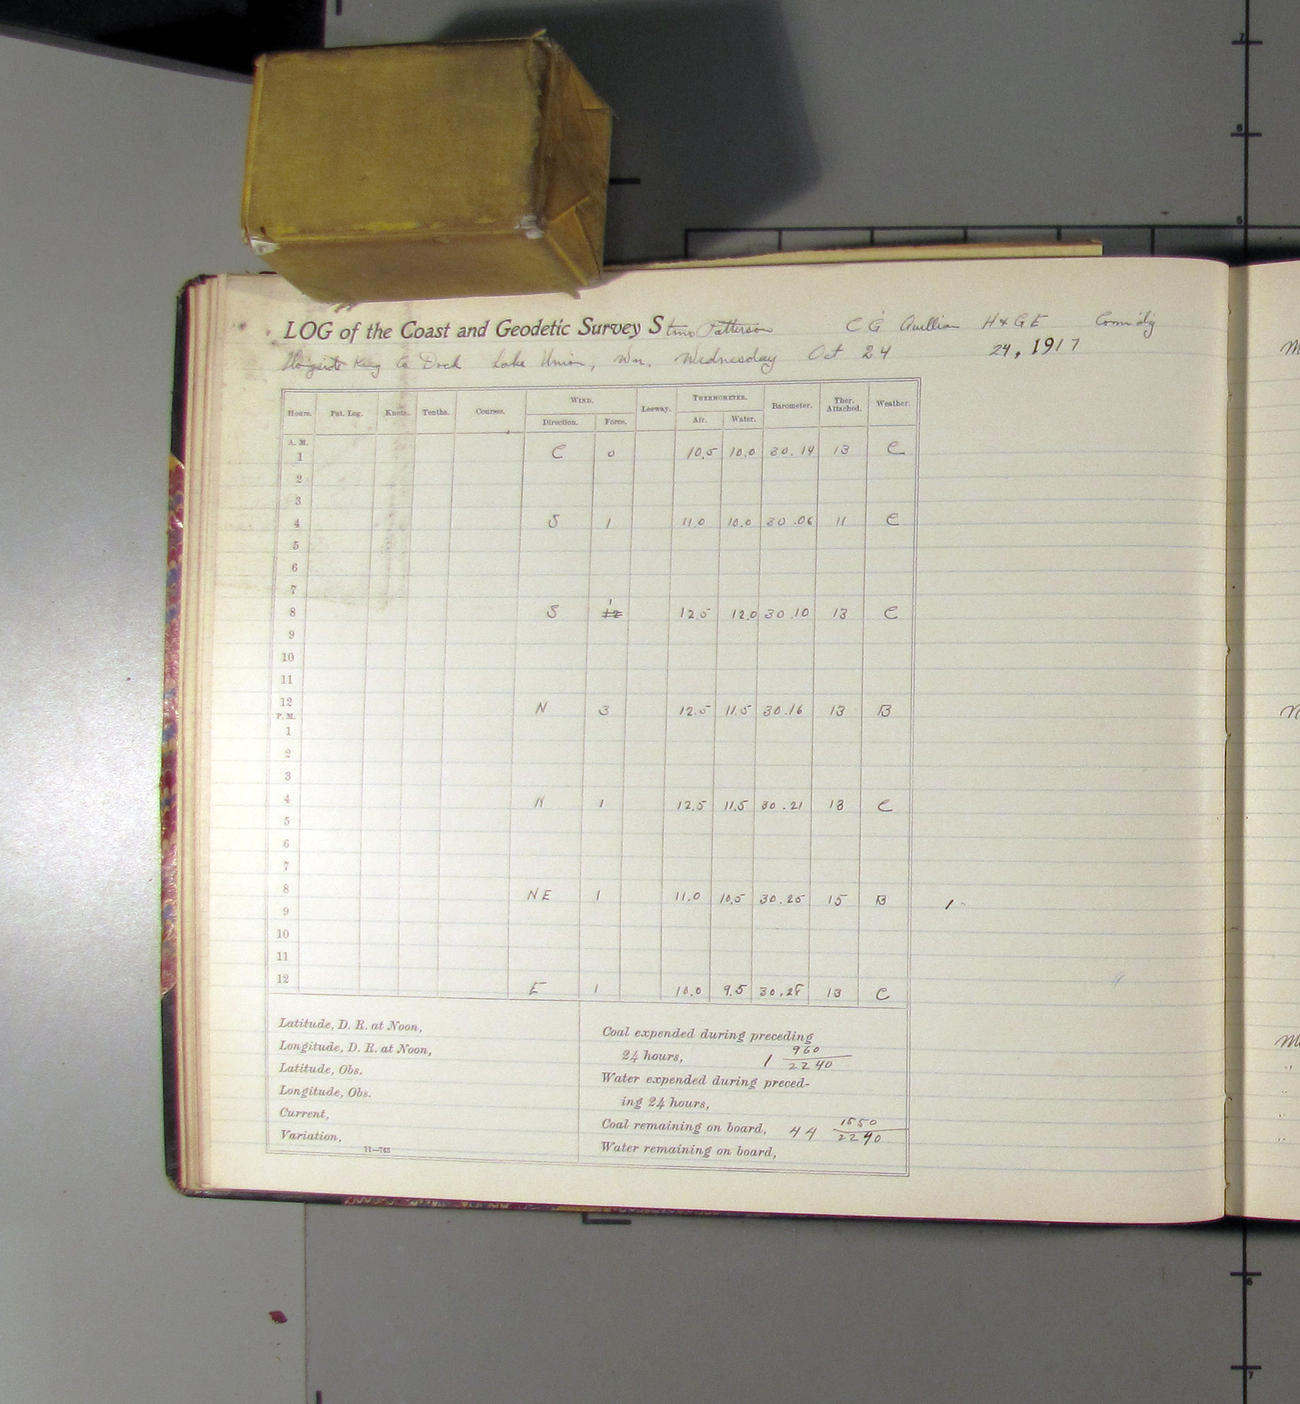 LOG of the Coast and Geodetic Survey Stmr Patterson C G Quillian H & G E Comm'dg
King Co Dock Lake Union, Wn. Wednesday Oct 24 24, 1917
Hours. Pat. Log. Knots. Tenths. Courses. WIND. Leeway. THERMOMETER. Barometer. Ther. Attached. Weather.
Direction. Force. Air. Water.
A. M.
1 C 0 10.5 10.0 30.14 13 C
2
3
4 S 1 11.0 10.0 30.06 11 C
5
6
7
8 S 1 12.5 12.0 30.10 13 C
9
10
11
12 N 3 12.5 11.5 30.16 13 B
P. M.
1
2
3
4 N 1 12.5 11.5 30.21 13 C
5
6
7
8 NE 1 11.0 10.5 30.25 15 B
9
10
11
12 E 1 10.0 9.5 30.28 13 C
Latitude, D. R. at Noon,
Longitude, D. R. at Noon,
Latitude, Obs.
Longitude, Obs.
Current,
Variation,
11—763
Coal expended during preceding
24 hours, 1 960/2240
Water expended during preced-
ing 24 hours,
Coal remaining on board, 44 1550/2240
Water remaining on board,